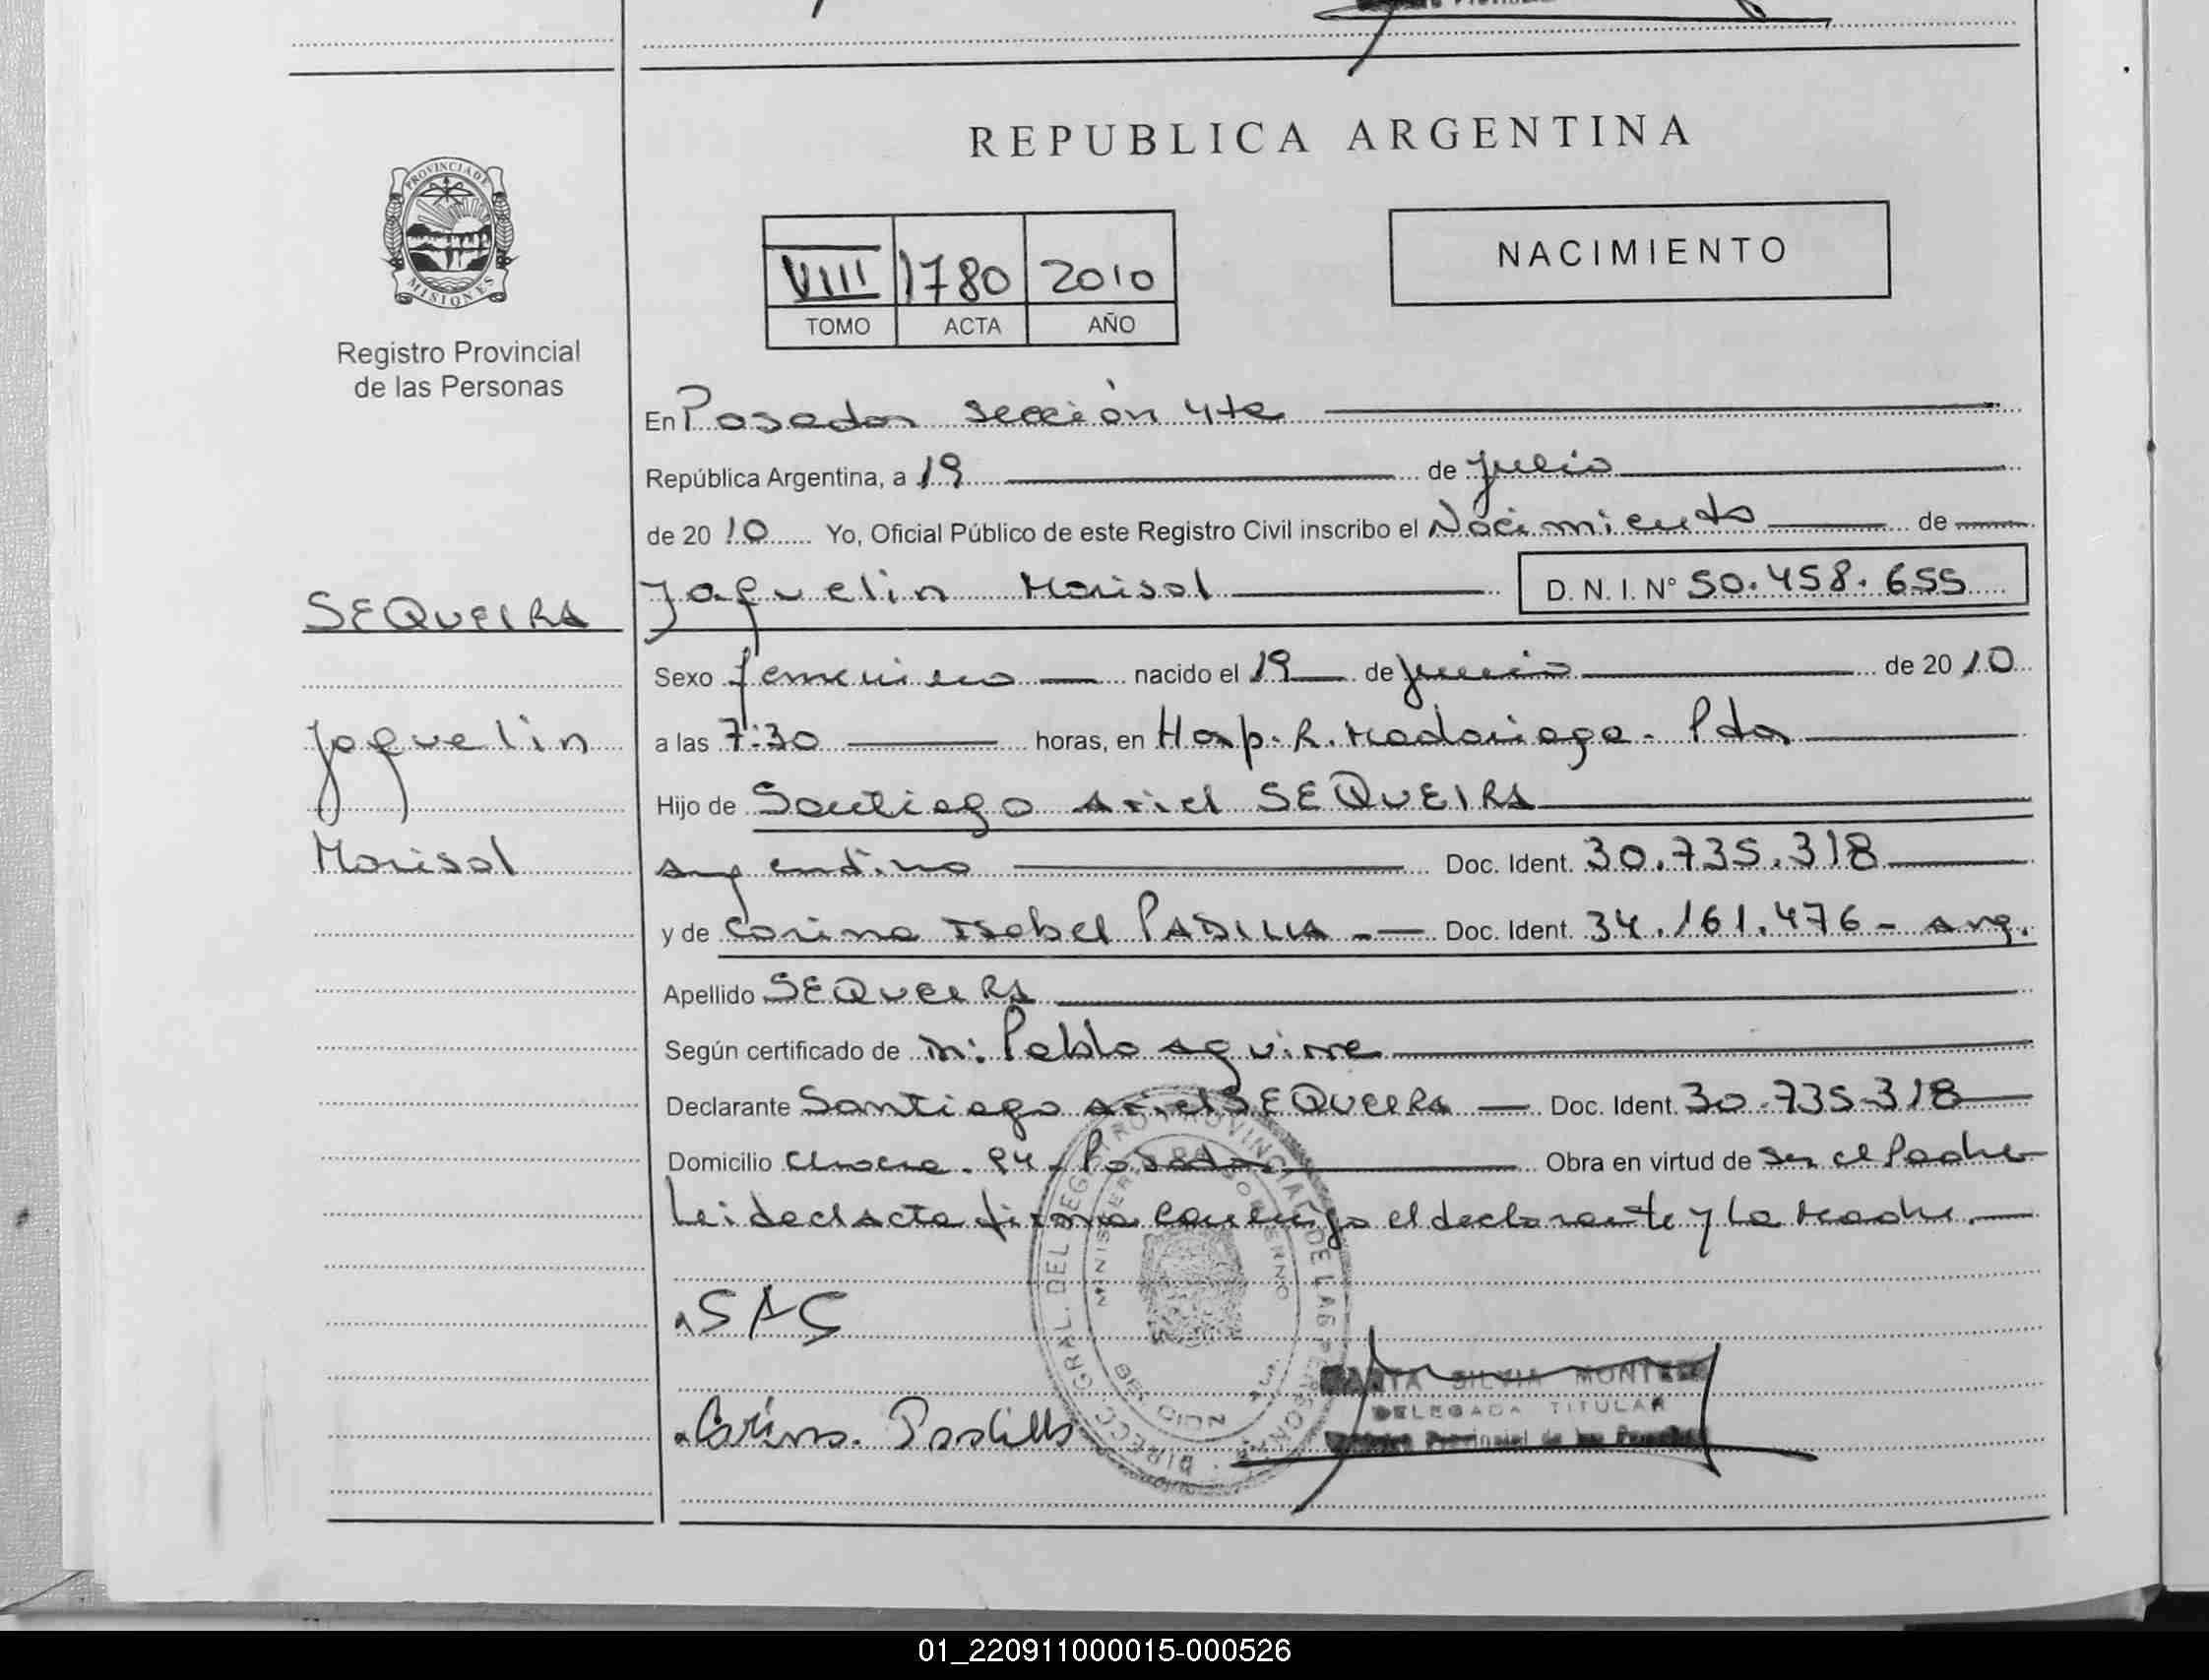 REPUBLICA ARGENTINA
PROVINCIA DE
MISIONES
Registro Provincial
de las Personas
VIII 1780 2010
TOMO ACTA AÑO
NACIMIENTO
En Posadas sección 4ta
República Argentina, a 19 de julio
de 2010 Yo, Oficial Público de este Registro Civil inscribo el Nacimiento de
SEQUEIRA
Jaquelin
Marisol
Jaquelin Marisol D. N. I. Nº 50.458.655
Sexo femenino nacido el 19 de junio de 2010
a las 7:30 horas, en Hosp. R. Madariaga - Pdas
Hijo de Santiago Ariel SEQUEIRA
argentino Doc. Ident. 30.735.318
y de Corina Isabel PADILLA Doc. Ident. 34.161.476 - arg.
Apellido SEQUEIRA
Según certificado de Pablo Aguirre
Declarante Santiago Ariel SEQUEIRA Doc. Ident. 30.735.318
Domicilio - Posadas Obra en virtud de ser el Padre
Leida el Acta firma conmigo el declarante y la Madre.
SAS
Corina. Padilla
DIRECC. GRAL. DEL REGISTRO PROVINCIAL DE LAS PERSONAS
MINISTERIO DE GOBIERNO
MARTA SILVIA
DELEGADA TITULAR
Provincial de las Personas
01_220911000015-000526